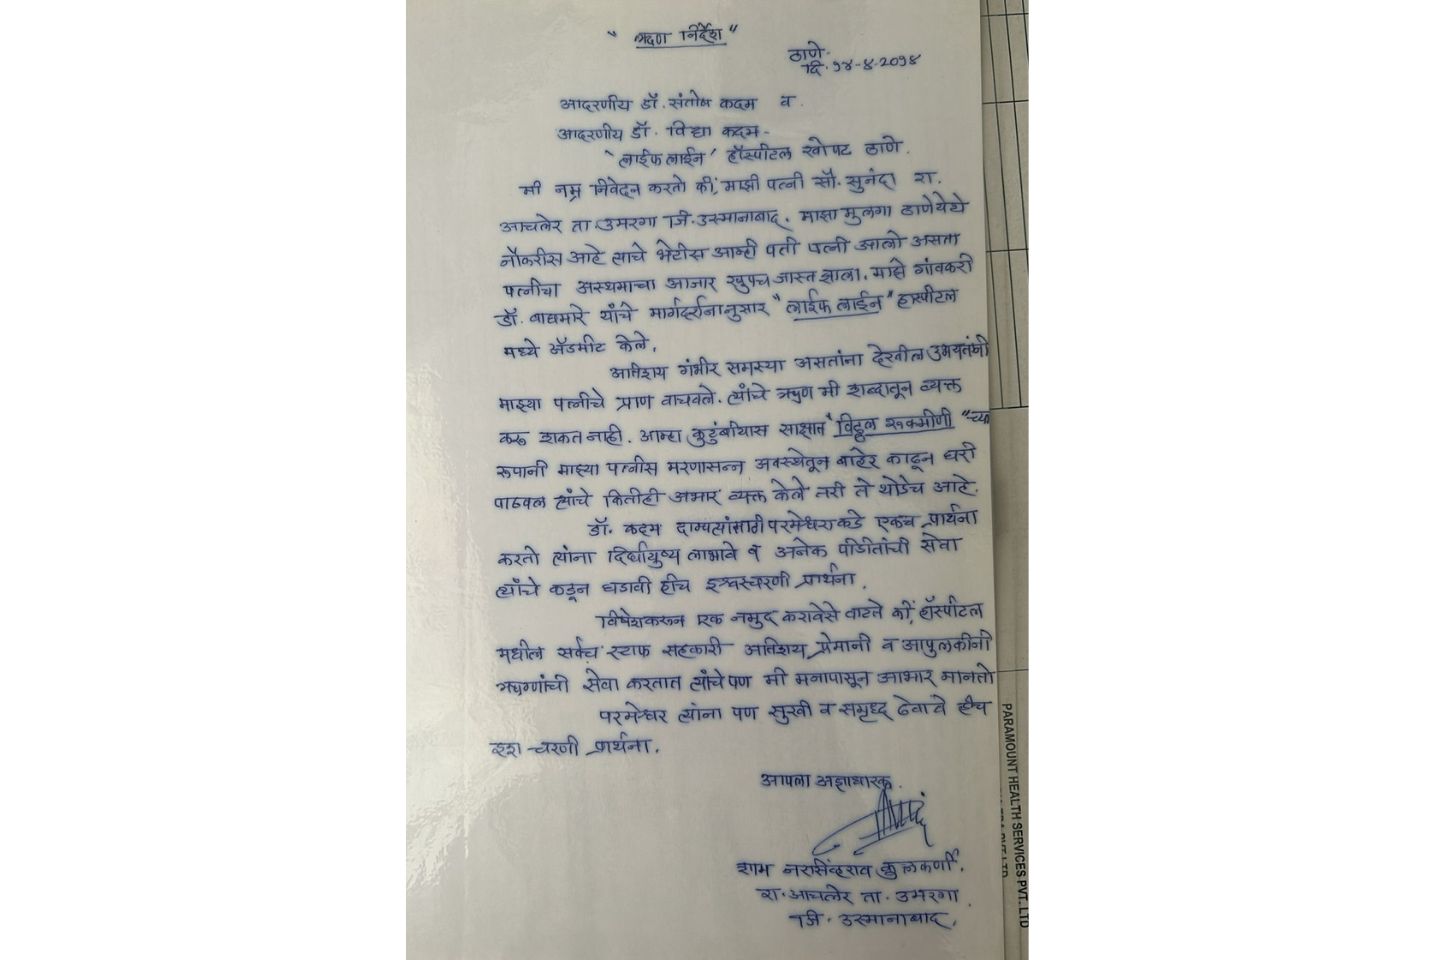 " ऋण निर्देश "
ठाणे.
दि. १४-४-२०१४
आदरणीय डॉ. संतोष कदम व.
आदरणीय डॉ. विद्या कदम-
'लाईफ लाईन' हॉस्पीटल खोपट ठाणे.
मी नम्र निवेदन करतो की, माझी पत्नी सौ. सुनंदा रा.
आचलेर ता. उमरगा जि. उस्मानाबाद. माझा मुलगा ठाणेयेथे
नौकरीस आहे त्याचे भेटीस आम्ही पती पत्नी आलो असता
पत्नीचा अस्थमाचा आजार खुपच जास्त झाला. माझे गांवकरी
डॉ. वाघमारे यांचे मार्गदर्शनानुसार "लाईफ लाईन" हास्पीटल
मध्ये अॅडमीट केले.
अतिशय गंभीर समस्या असतांना देखील उभयतांनी
माझ्या पत्नीचे प्राण वाचवले. त्यांचे ऋण मी शब्दातून व्यक्त
करू शकत नाही. आम्हा कुटुंबीयास साक्षात "विठ्ठल रूक्मीणी "च्या
रूपानी माझ्या पत्नीस मरणासन्न अवस्थेतून बाहेर काढून घरी
पाठवल त्यांचे कितीही अभार व्यक्त केले तरी ते थोडेच आहे.
डॉ. कदम दाम्पत्यांसाठी परमेश्वराकडे एकच प्रार्थना
करतो त्यांना दिर्घायुष्य लाभावे व अनेक पिडितांची सेवा
त्यांचे कडून घडावी हीच इश्वरचरणी प्रार्थना.
विषेशकरून एक नमुद करावेसे वाटते की, हॉस्पीटल
मधील सर्वच स्टाफ सहकारी अतिशय प्रेमानी व आपुलकीनी
रुग्णांची सेवा करतात त्यांचे पण मी मनापासून आभार मानतो
परमेश्वर त्यांना पण सुखी व समृध्द ठेवावे हीच
इश चरणी प्रार्थना.
आपला अज्ञाधारक
शाम नरसिंहराव कुलकर्णी.
रा. आचलेर ता. उमरगा
जि. उस्मानाबाद.
PARAMOUNT HEALTH SERVICES PVT. LTD